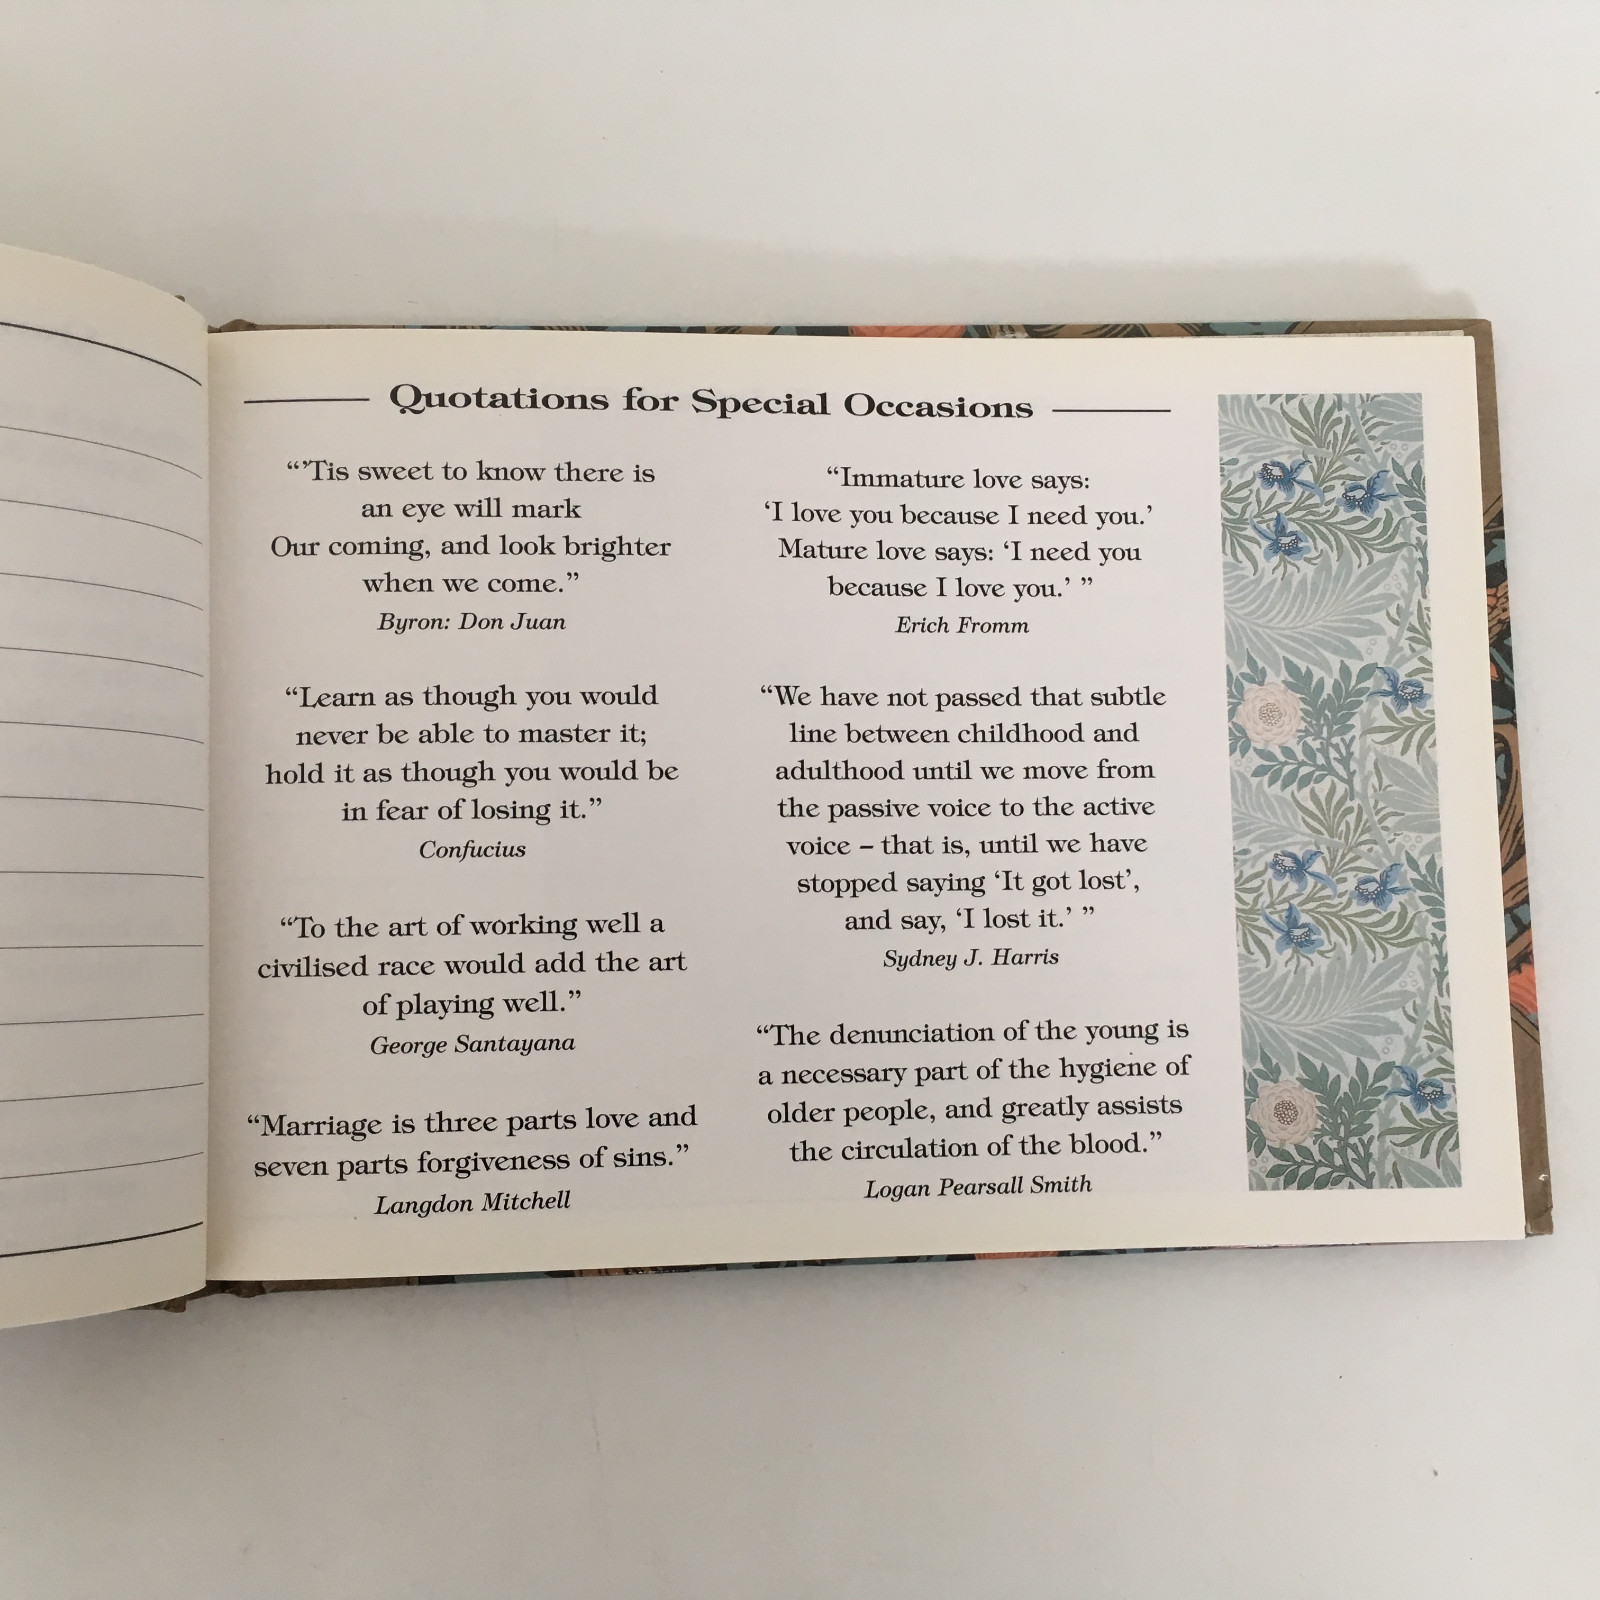 Quotations for Special Occasions
“’Tis sweet to know there is
an eye will mark
Our coming, and look brighter
when we come.”
Byron: Don Juan
“Learn as though you would
never be able to master it;
hold it as though you would be
in fear of losing it.”
Confucius
“To the art of working well a
civilised race would add the art
of playing well.”
George Santayana
“Marriage is three parts love and
seven parts forgiveness of sins.”
Langdon Mitchell
“Immature love says:
‘I love you because I need you.’
Mature love says: ‘I need you
because I love you.’ ”
Erich Fromm
“We have not passed that subtle
line between childhood and
adulthood until we move from
the passive voice to the active
voice – that is, until we have
stopped saying ‘It got lost’,
and say, ‘I lost it.’ ”
Sydney J. Harris
“The denunciation of the young is
a necessary part of the hygiene of
older people, and greatly assists
the circulation of the blood.”
Logan Pearsall Smith